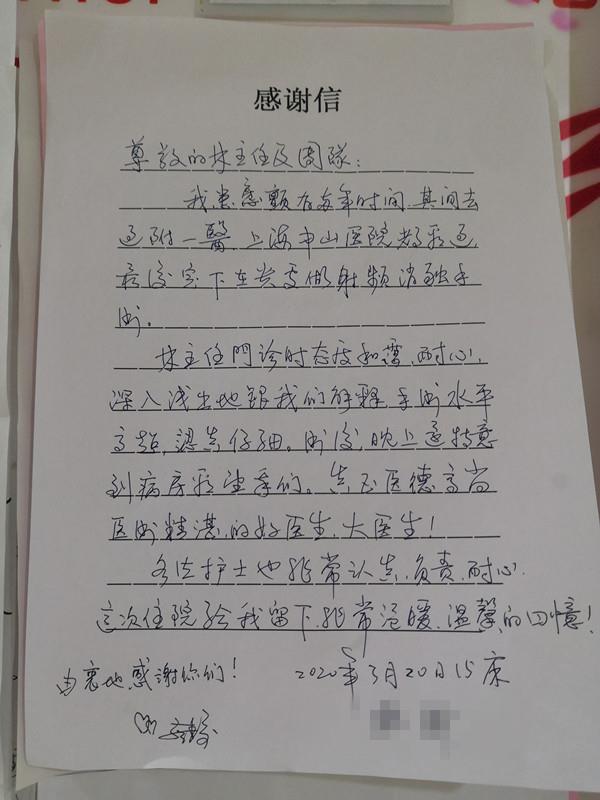 感谢信
尊敬的林主任及团隊：
我患房颤有每年时间，其间去
过附一醫、上海中山医院都看过，
最後定下在贵处做射频消融手
術。
林主任門诊时态度和靄，耐心，
深入浅出地跟我们解释，手術水平
高超，認真仔细。術後，晚上还特意
到病房看望我们。真正医德高尚
医術精湛的好医生，大医生！
各位护士也非常认真，负责，耐心，
这次住院给我留下非常温暖、温馨的回憶！
由衷地感谢你们！
2020年3月20日15床